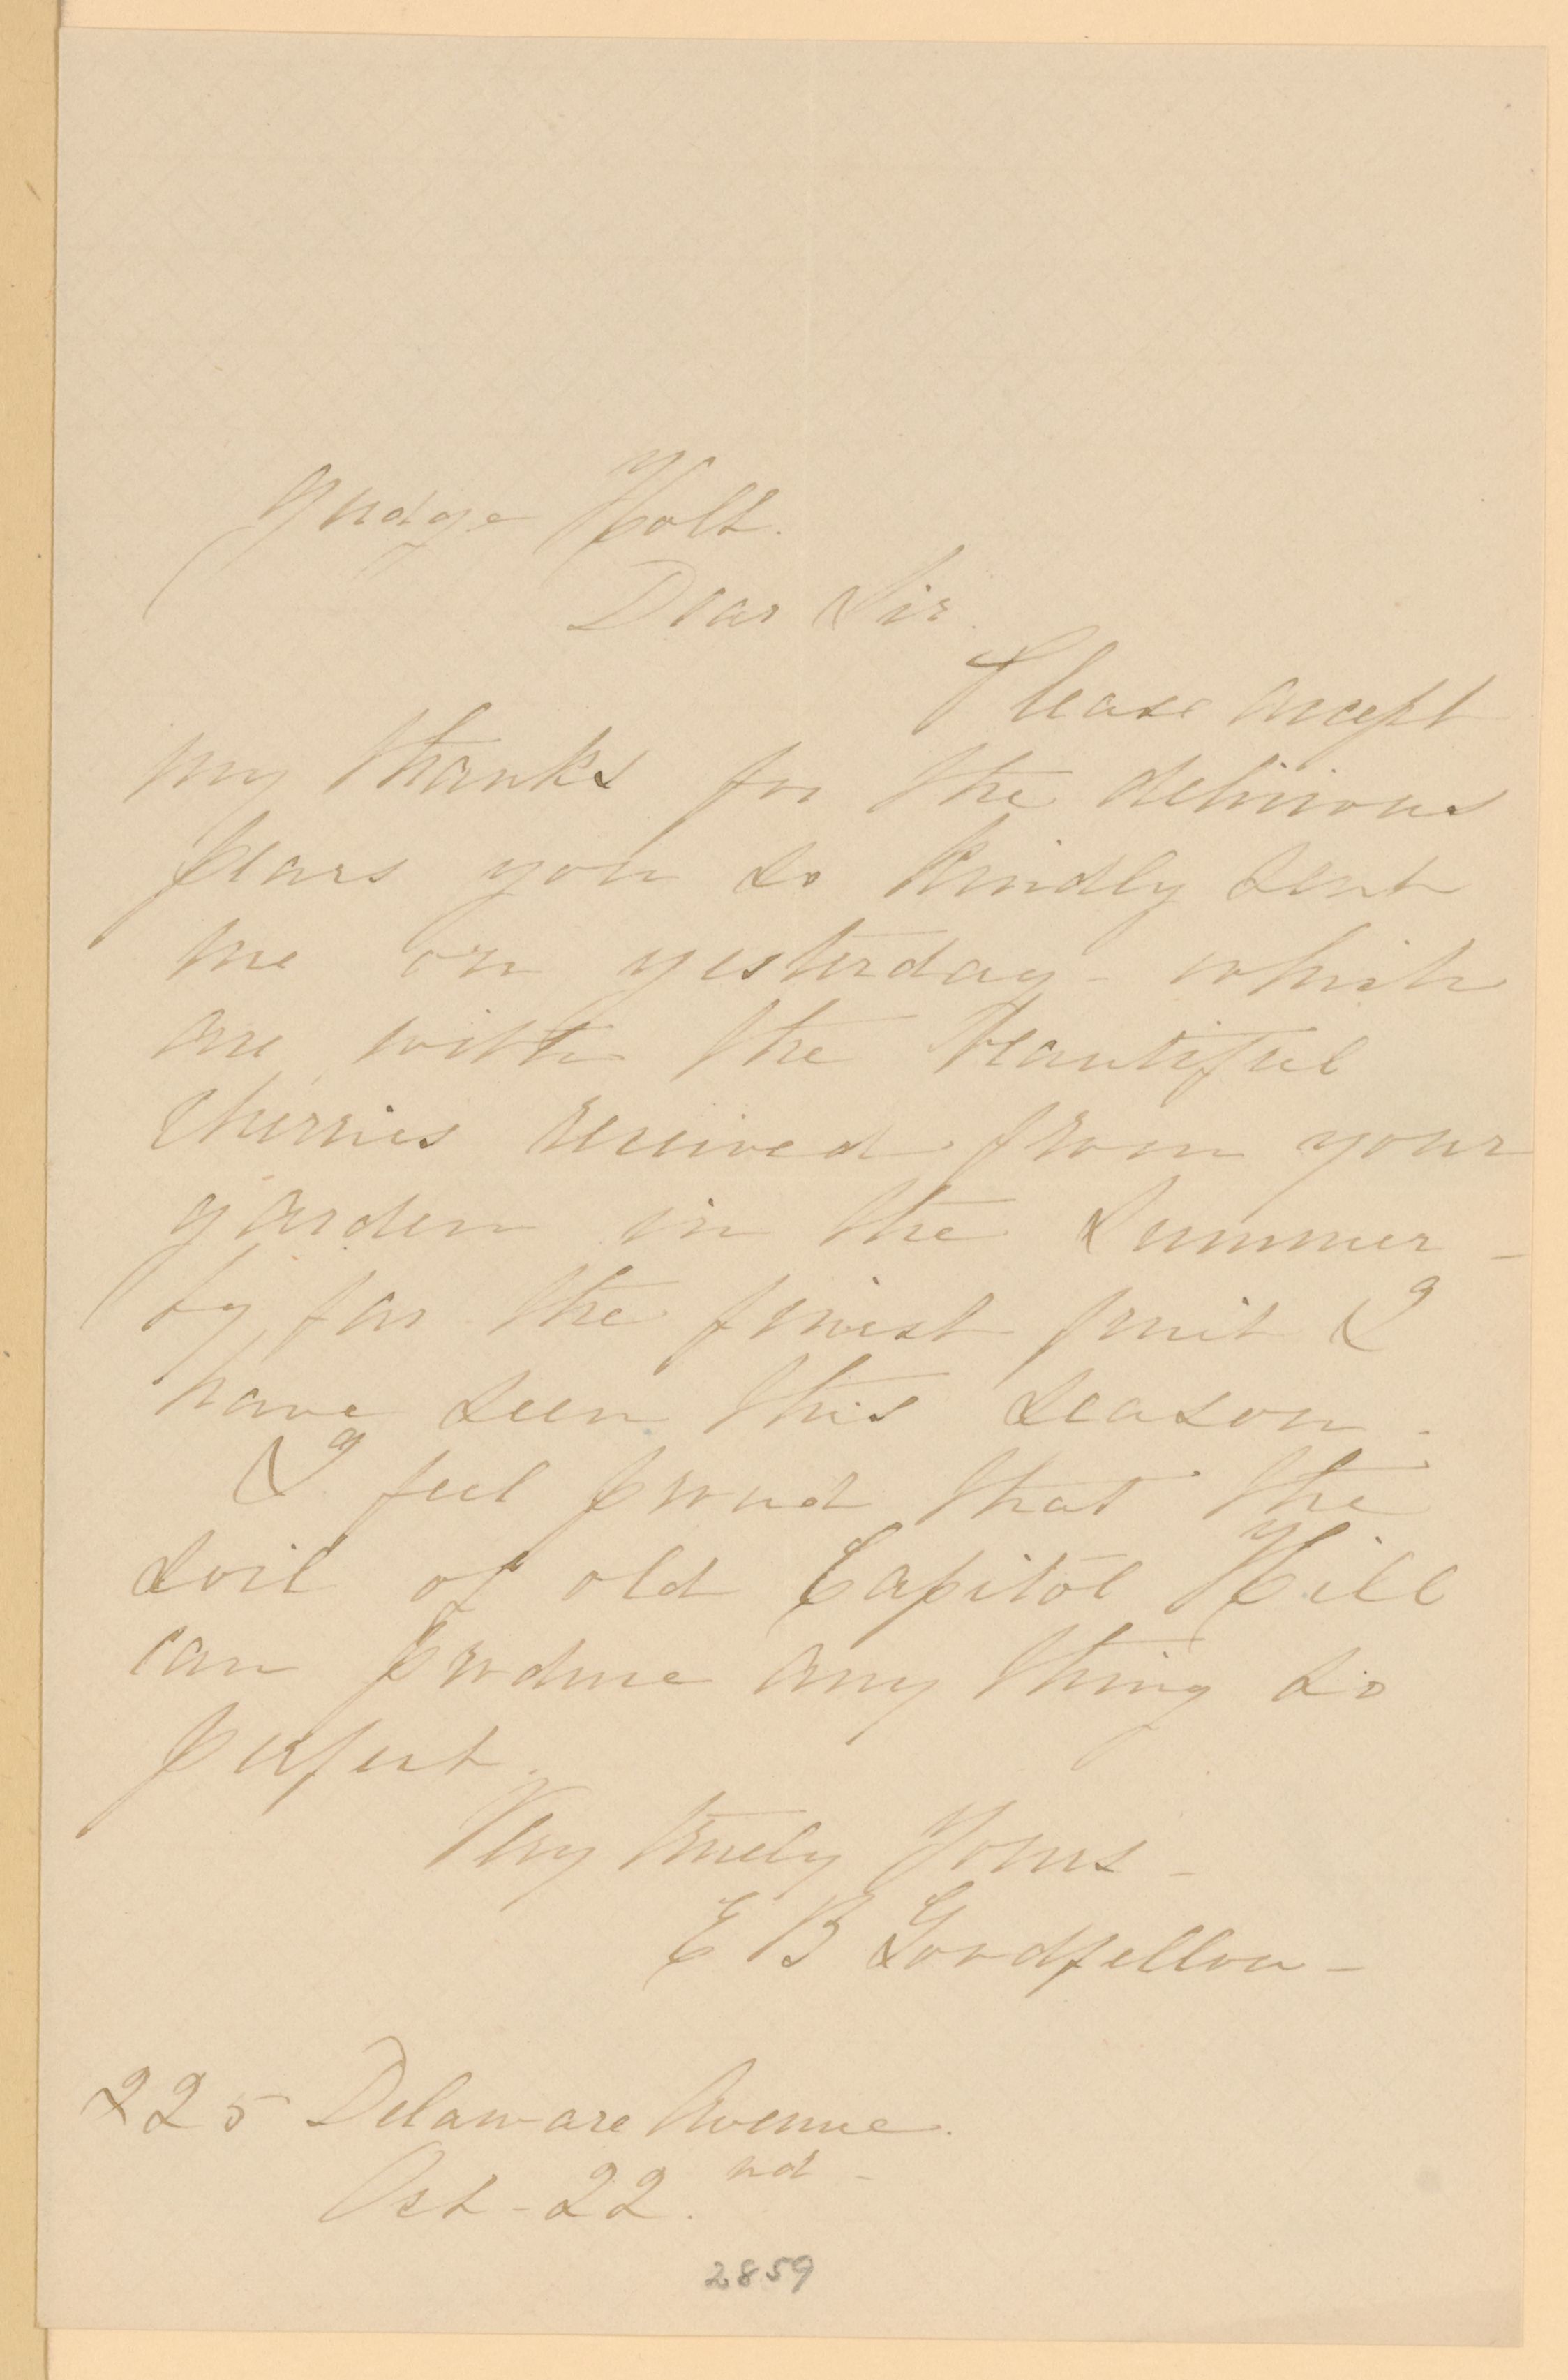 Judge Holt.
Dear Sir.
Please accept
my thanks for the delicious
pears you so kindly sent
me on yesterday - which
are with the beautiful
cherries received from your
garden in the Summer -
by far the finest fruit I
have seen this season.
I feel proud that the
soil of old Capitol Hill
can produce any thing so
perfect.
Very truely Yours -
E B Goodfellow -
225 Delaware Avenue.
Oct - 22.nd -
2859